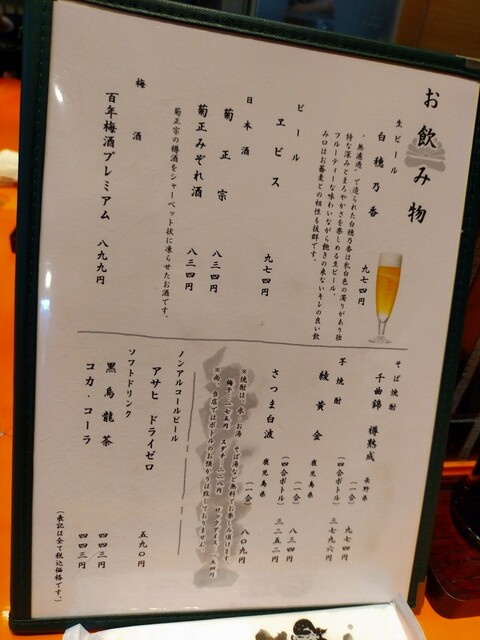 お飲み物
生ビール
白穂乃香 九七四円
"無濾過"で造られた白穂乃香は乳白色の濁りがあり独
特な深みとまろやかさを楽しめる生ビール。
フルーティーな味わいながら飽きの来ないキレの良い飲
み口はお蕎麦との相性も抜群です。
ビール
ヱビス 九七四円
日本酒
菊正宗 八三四円
菊正みぞれ酒 八三四円
菊正宗の樽酒をシャーベット状に凍らせたお酒です。
梅酒
百年梅酒プレミアム 八九九円
そば焼酎
千曲錦 樽熟成 長野県
(一合) 九七四円
(四合ボトル) 三七九六円
芋焼酎
綾黄金 鹿児島県
(一合) 八三四円
(四合ボトル) 三二五二円
さつま白波 鹿児島県
(一合) 八〇九円
※焼酎は、水・お湯・そば湯など無料でお楽しみ頂けます。
梅干 二七五円 スダチ 二二八円 ロックアイス 一五四円
※尚、当店ではボトルのお預かりは致しておりません。
ノンアルコールビール
アサヒ ドライゼロ 五九〇円
ソフトドリンク
黒烏龍茶 四四三円
コカ・コーラ 四四三円
(表記は全て税込価格です。)